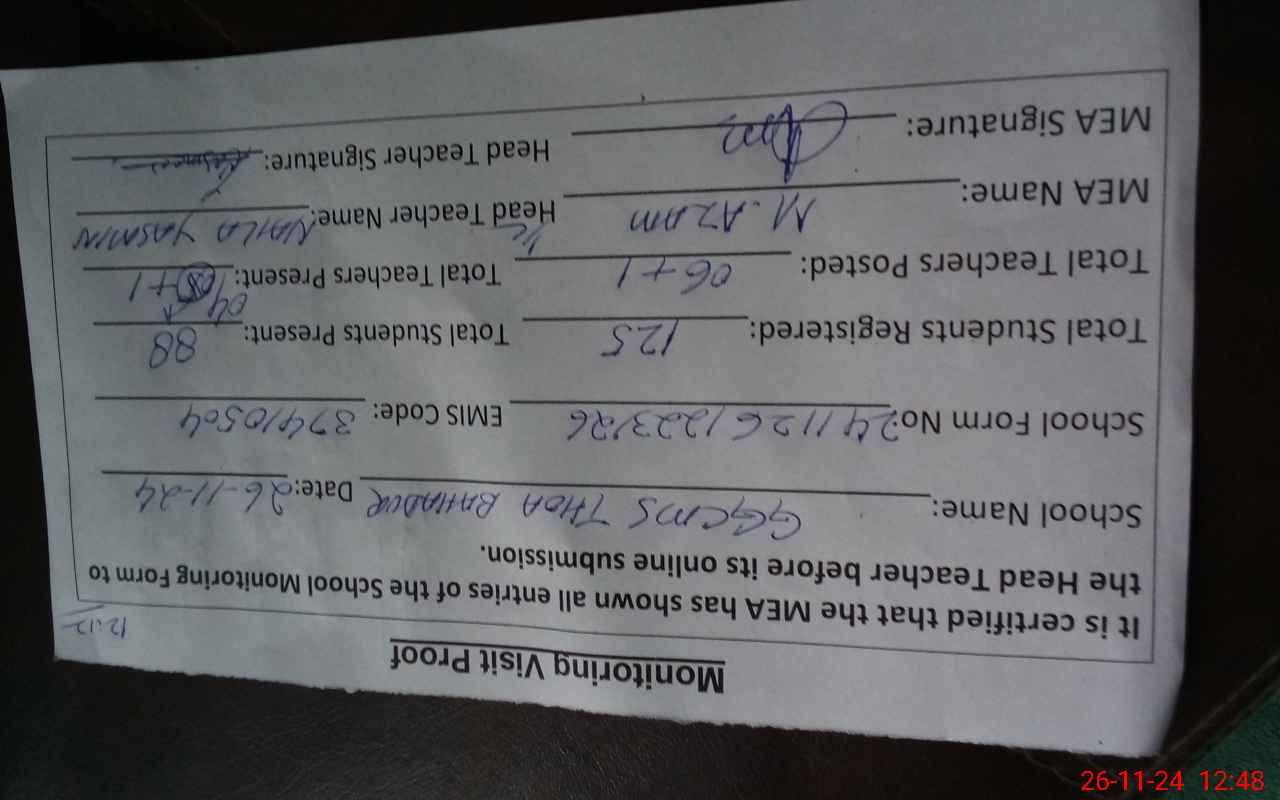 Monitoring Visit Proof
12:12
It is certified that the MEA has shown all entries of the School Monitoring Form to
the Head Teacher before its online submission.
School Name: GGCMS THOA BAHADUR Date: 26-11-24
School Form No: 2411261223126 EMIS Code: 37410504
Total Students Registered: 125 Total Students Present: 88
04
Total Teachers Posted: 06+1 Total Teachers Present: +1
MEA Name: M. AZAM I/C Head Teacher Name: NAILA YASMIN
MEA Signature: Head Teacher Signature:
26-11-24 12:48